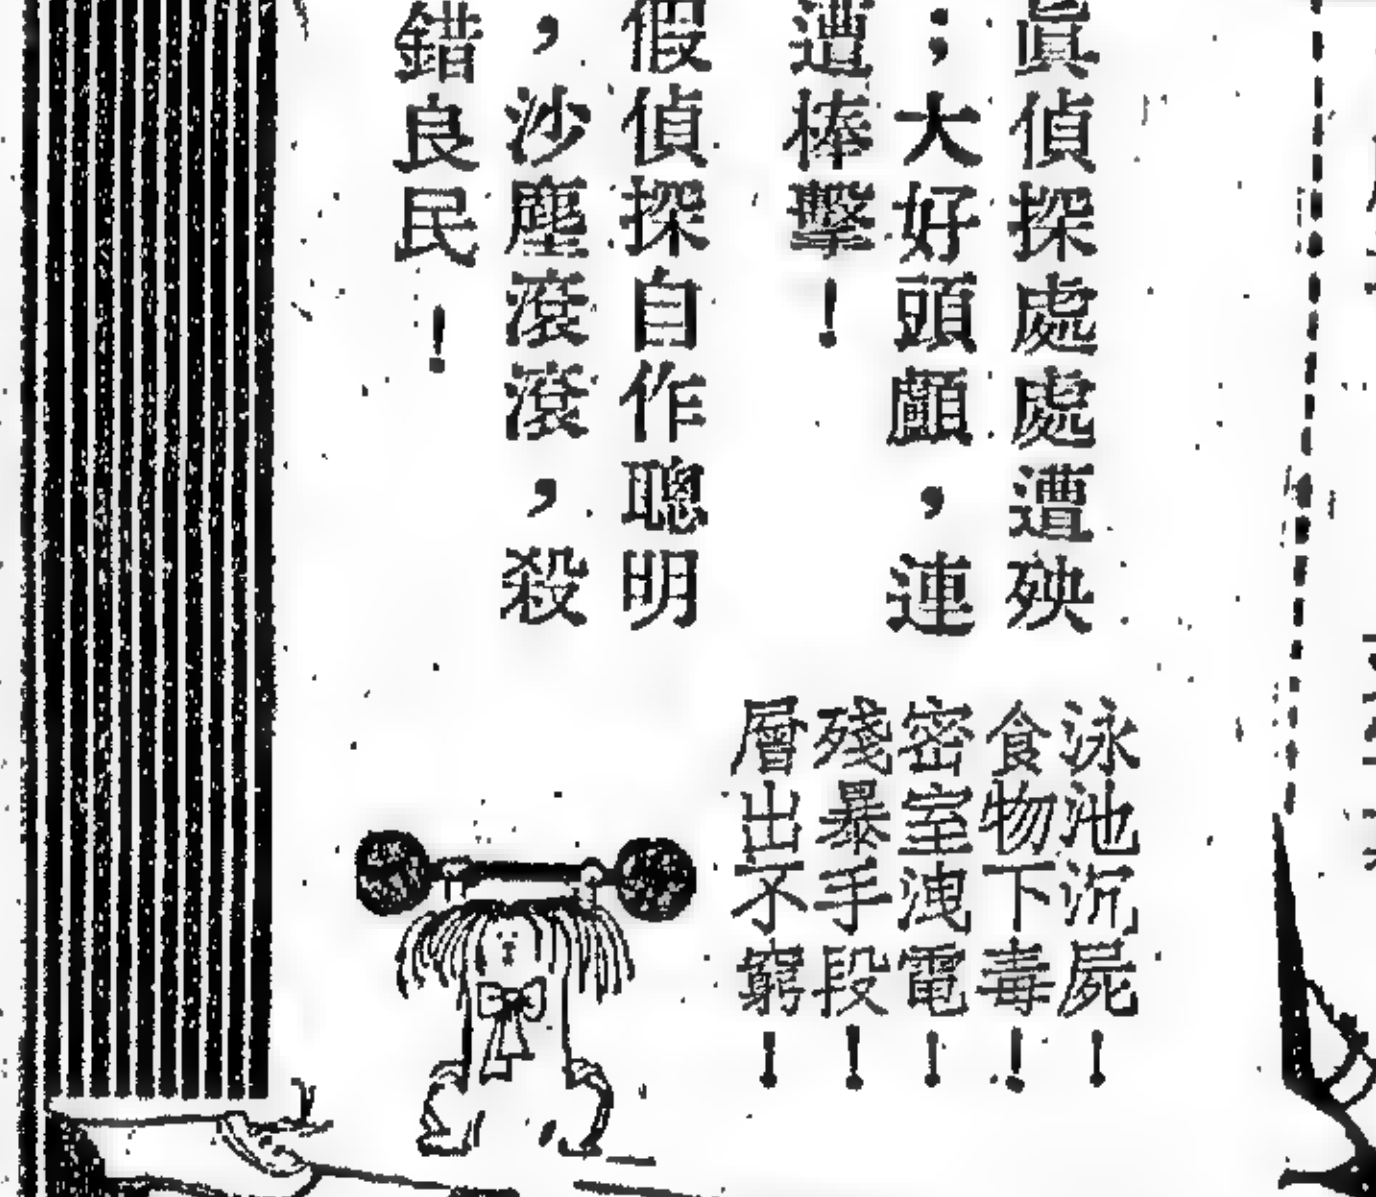 眞偵探處處遭殃
；大好頭顱，連
遭棒擊！
假偵探自作聰明
，沙塵滾滾，殺
錯良民！
泳池沉屍！
食物下毒！
密室洩電！
殘暴手段！
層出不窮！